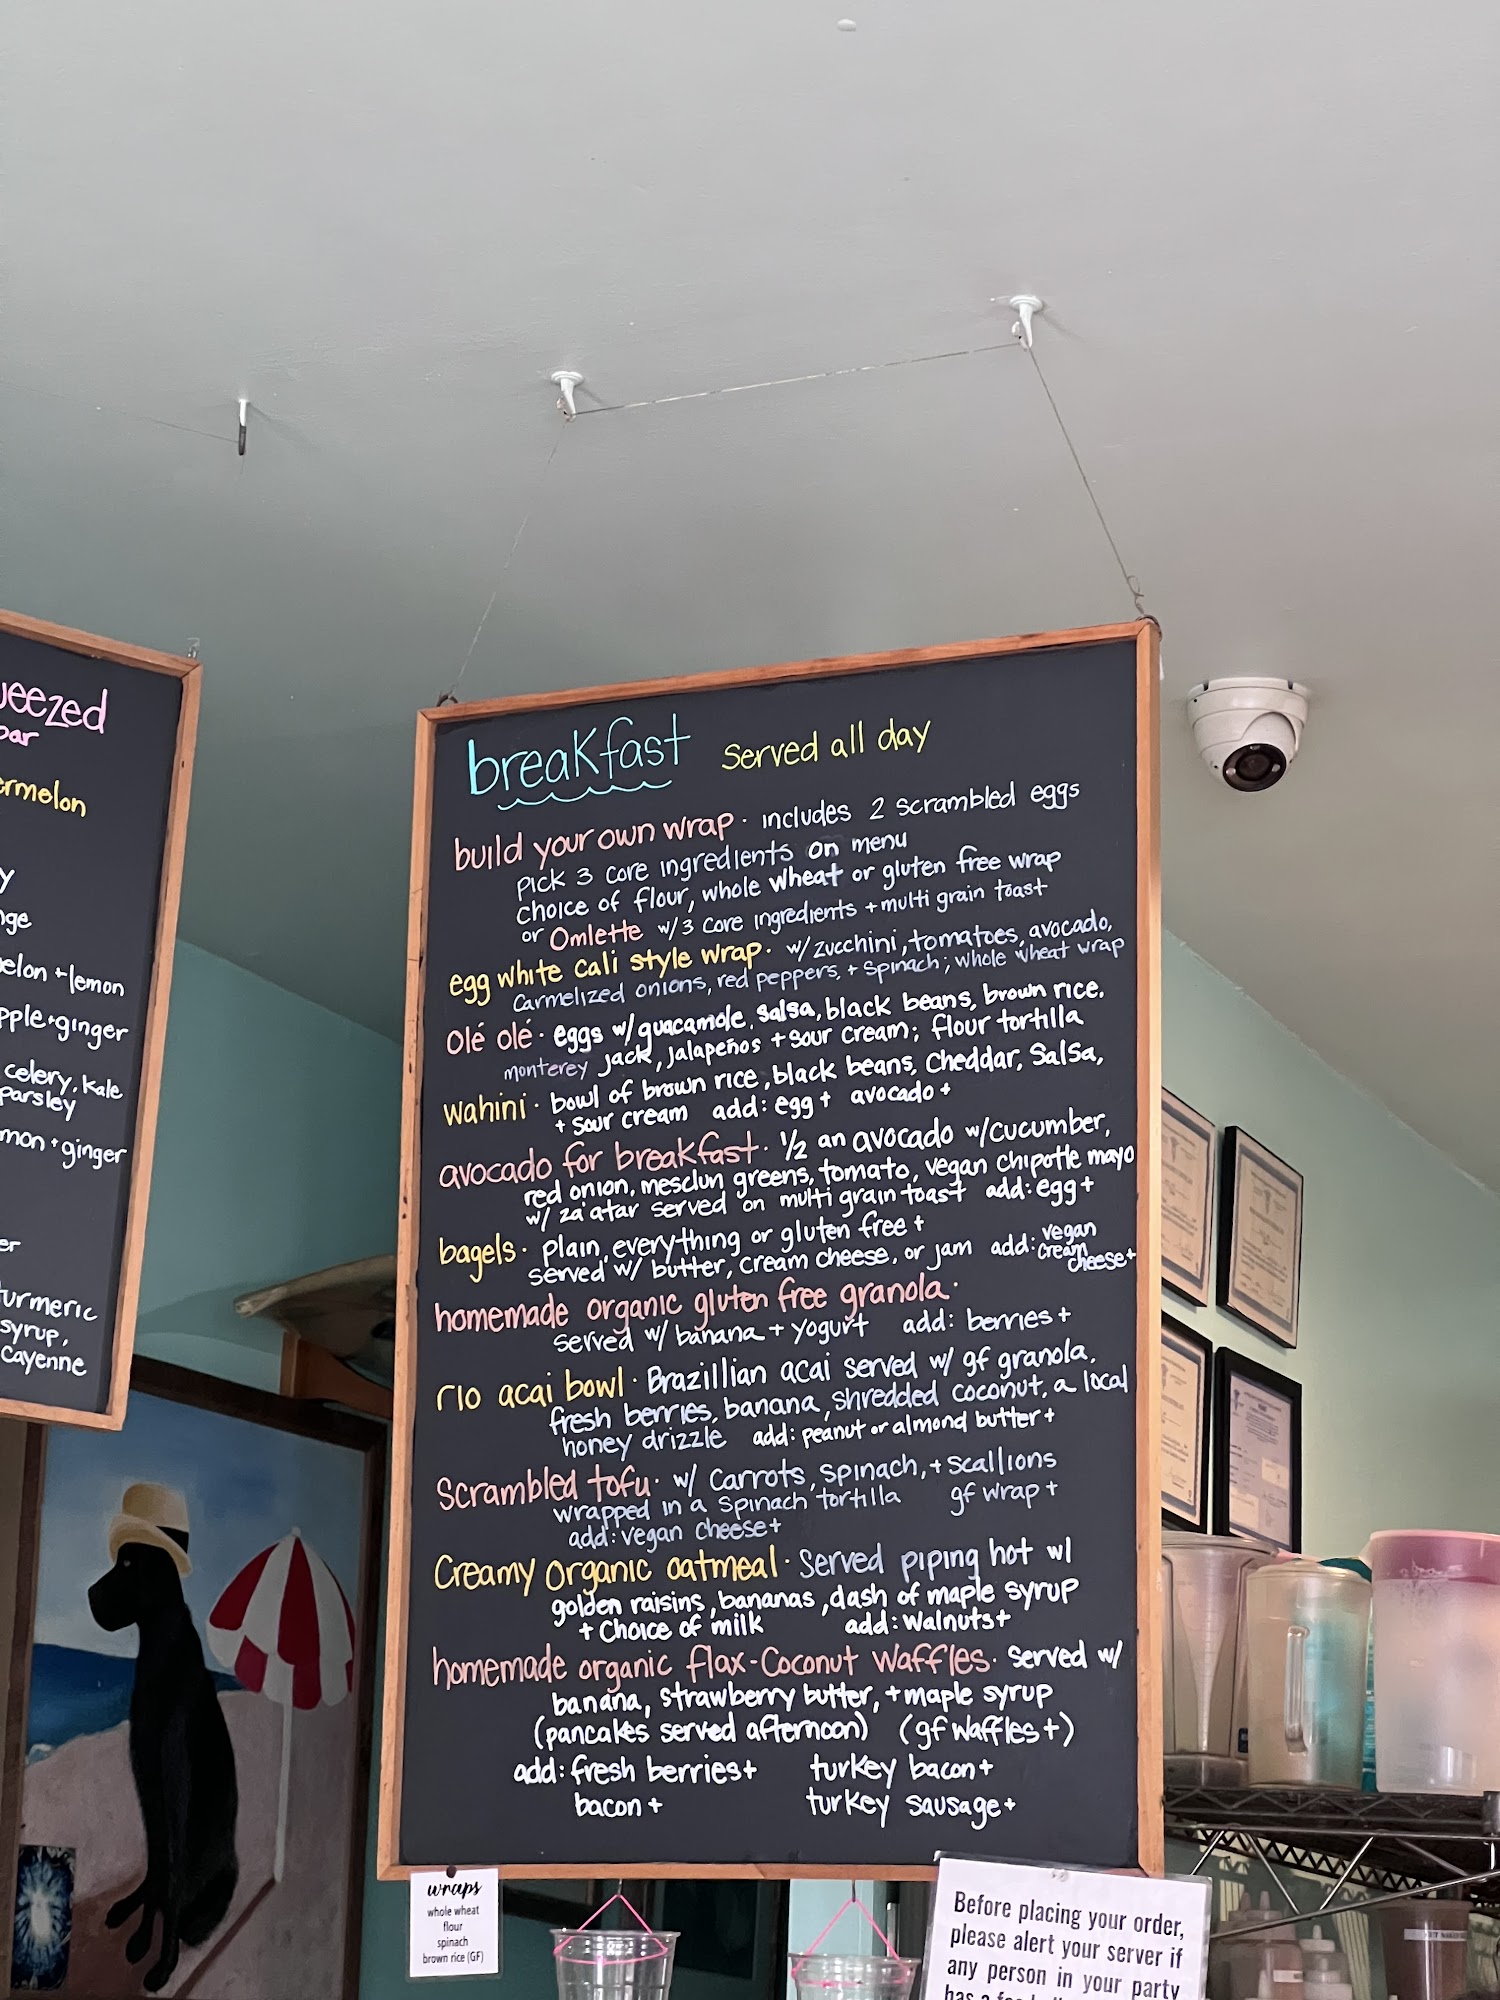 ueezed
bar
ermelon
y
nge
elon + lemon
pple + ginger
celery, kale
parsley
mon + ginger
er
turmeric
syrup,
cayenne
breakfast served all day
build your own wrap · includes 2 scrambled eggs
pick 3 core ingredients on menu
choice of flour, whole wheat or gluten free wrap
or Omlette w/3 core ingredients + multi grain toast
egg white cali style wrap · w/zucchini, tomatoes, avocado,
carmelized onions, red peppers, + spinach; whole wheat wrap
olé olé · eggs w/guacamole, salsa, black beans, brown rice,
monterey jack, jalapeños + sour cream; flour tortilla
wahini · bowl of brown rice, black beans, cheddar, salsa,
+ sour cream add: egg+ avocado+
avocado for breakfast · 1/2 an avocado w/cucumber,
red onion, mesclun greens, tomato, vegan chipotle mayo
w/ za'atar served on multi grain toast add: egg+
bagels · plain, everything or gluten free +
served w/ butter, cream cheese, or jam add: vegan cream cheese+
homemade organic gluten free granola ·
served w/ banana + yogurt add: berries+
rio acai bowl · Brazillian acai served w/ gf granola,
fresh berries, banana, shredded coconut, a local
honey drizzle add: peanut or almond butter+
scrambled tofu · w/ carrots, spinach, + scallions
wrapped in a spinach tortilla gf wrap+
add: vegan cheese+
Creamy organic oatmeal · served piping hot w/
golden raisins, bananas, dash of maple syrup
+ choice of milk add: walnuts+
homemade organic flax-coconut waffles · served w/
banana, strawberry butter, + maple syrup
(pancakes served afternoon) (gf waffles+)
add: fresh berries+ turkey bacon+
bacon+ turkey sausage+
wraps
whole wheat
flour
spinach
brown rice (GF)
Before placing your order,
please alert your server if
any person in your party
has a